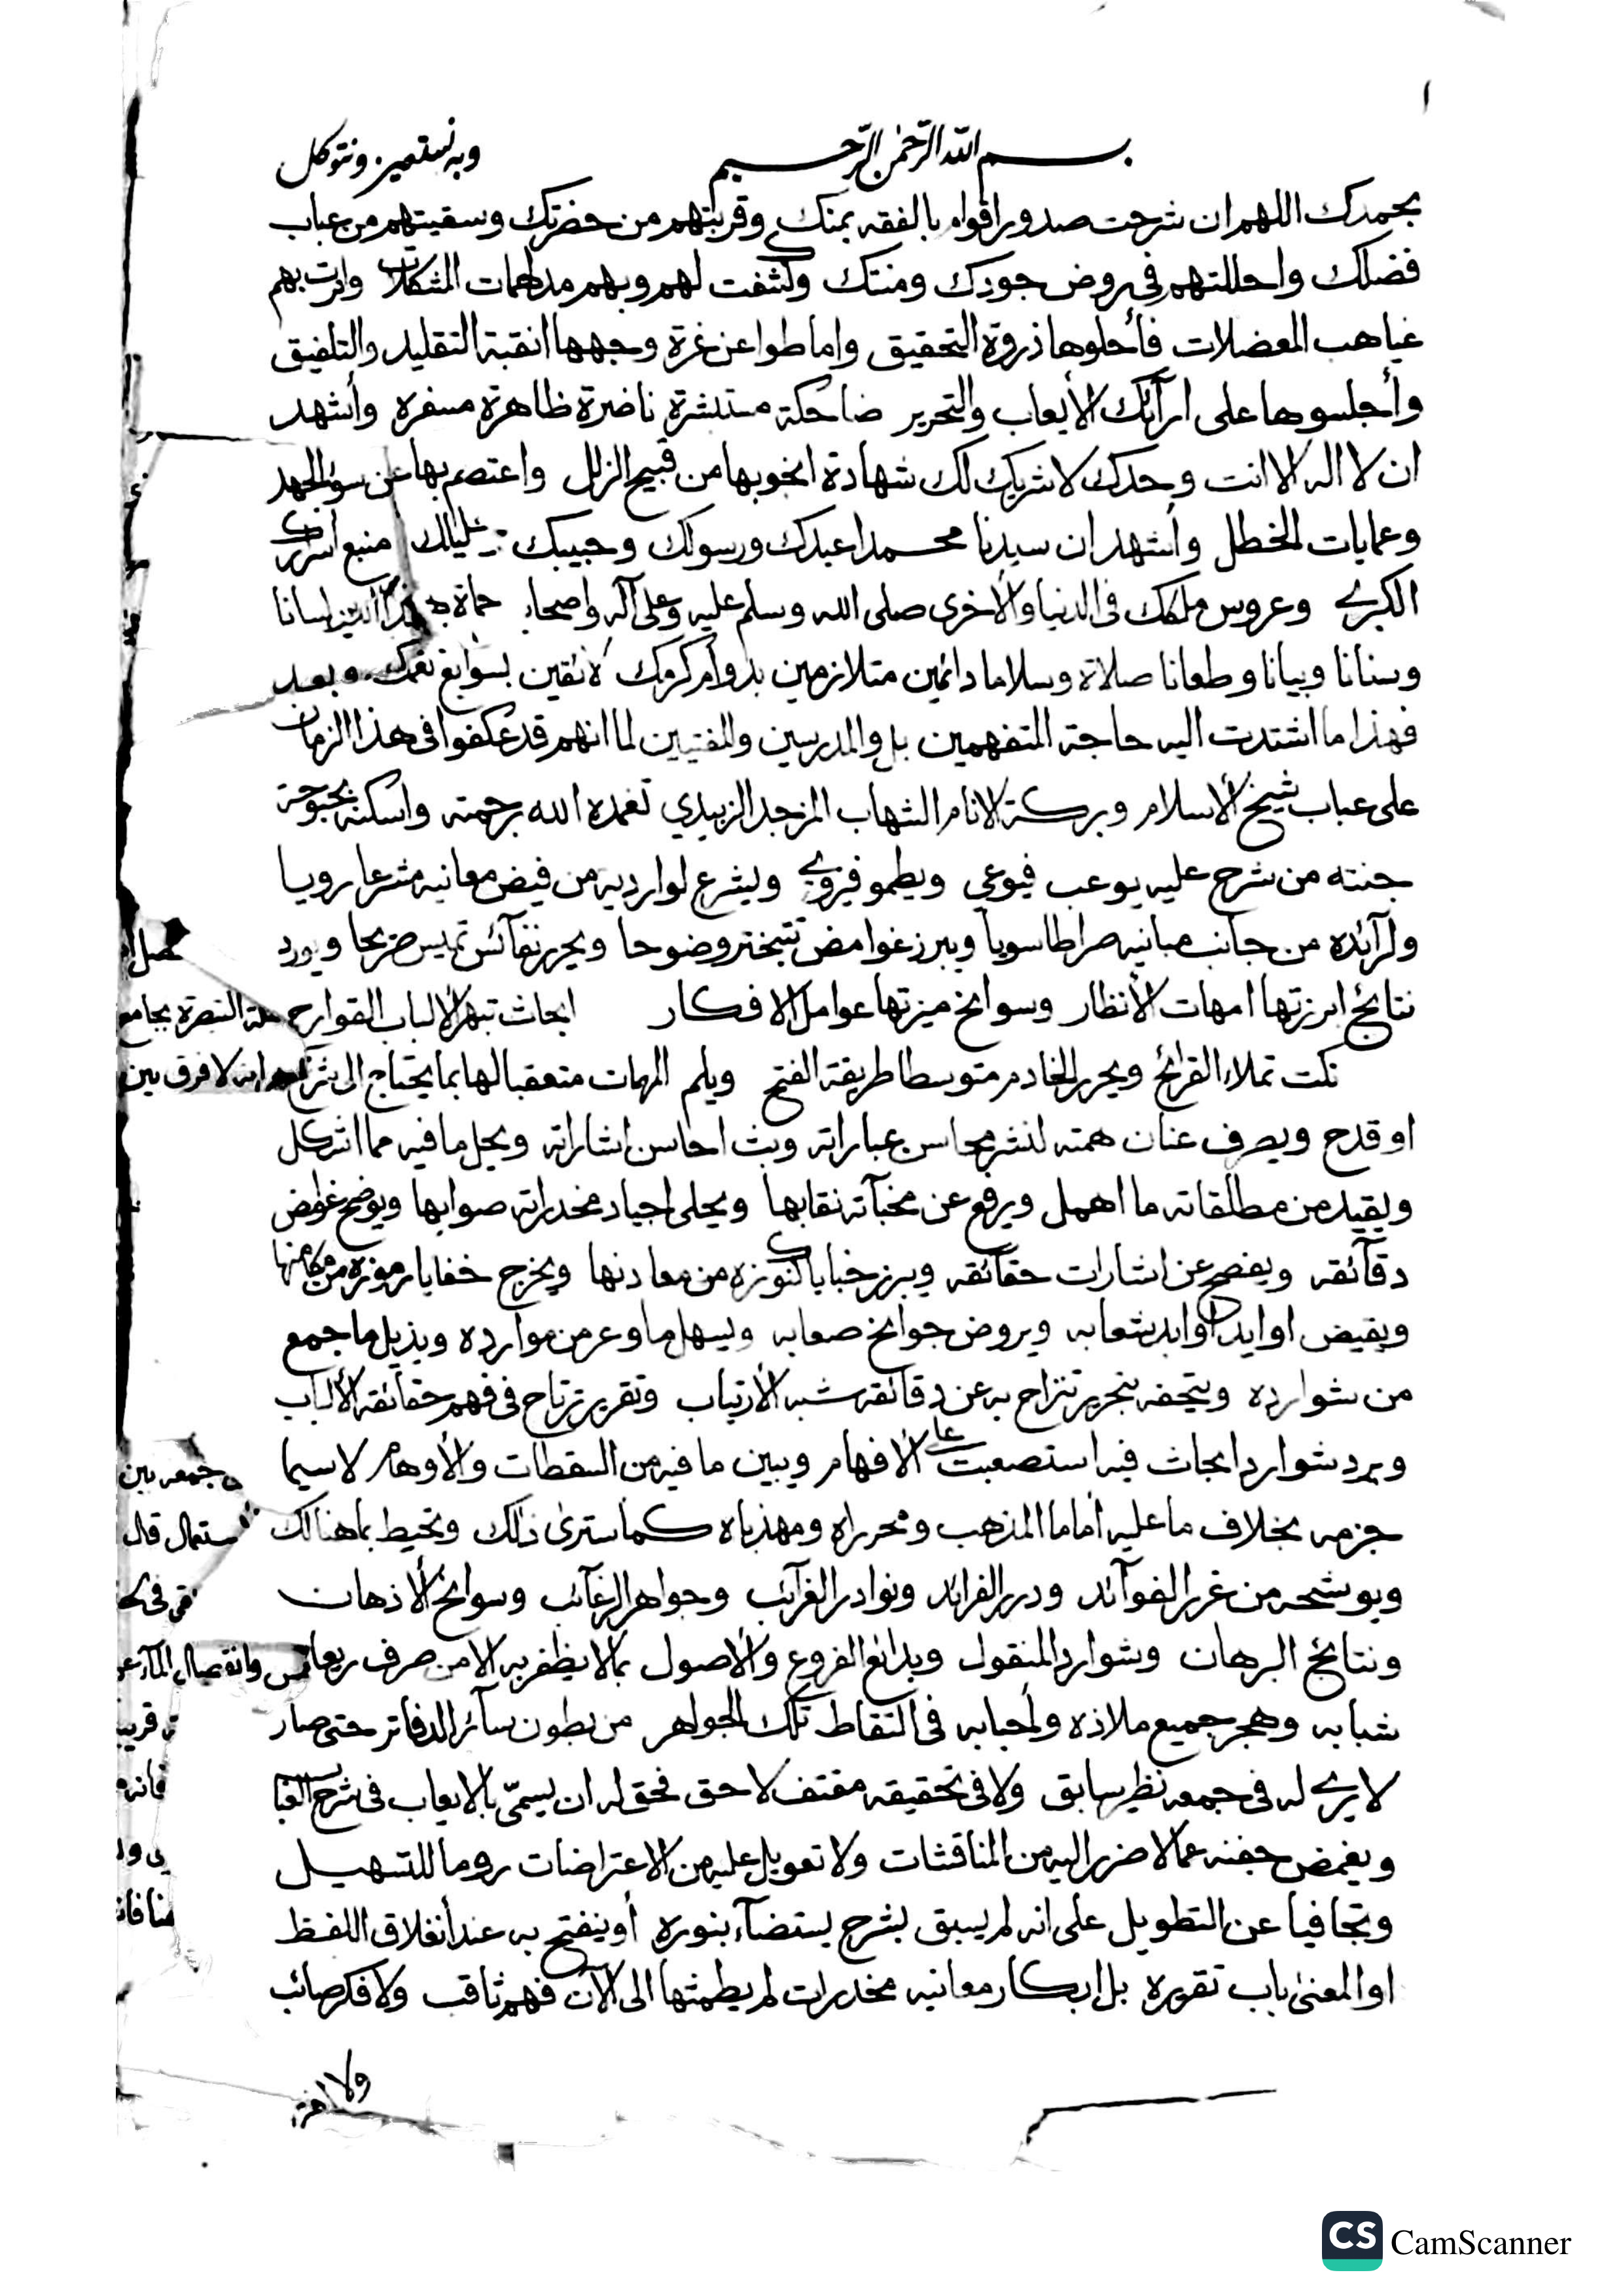 ١
بسم الله الرحمن الرحيم وبه نستعين ونتوكل
بحمدك اللهم ان شرحت صدور اقوام بالفقه بمنك وقربتهم من حضرتك وسقيتهم من عباب
فضلك واحللتهم في روض جودك ومنتك وكشفت لهم وبهم مدلهمات المشكلات وانرت بهم
غياهب المعضلات فأحلوها ذروة التحقيق واماطوا عن غرة وجهها انقبة التقليد والتلفيق
وأجلسوها على ارآئك الأيعاب والتحرير ضاحكة مستبشرة ناضرة ظاهرة مسفرة وأشهد
ان لا اله الا انت وحدك لا شريك لك شهادة انخو بها من قبيح الزلل واعتصم بها عن سوء الجهد
وعمايات الخطل وأشهد ان سيدنا محمدا عبدك ورسولك وحبيبك وخليلك منبع أسرارك
الكبرى وعروس ملكك في الدنيا والأخرى صلى الله وسلم عليه وعلى آله واصحابه حماة هذا الدين لسانا
وسنانا وبيانا وطعانا صلاة وسلاما دائمين متلازمين بدوام كرمك لائقين بسوابغ نعمك وبعد
فهذا ما اشتدت اليه حاجة المتفهمين بل والمدرسين والمفتيين لما انهم قد عكفوا في هذا الزمان
على عباب شيخ الأسلام وبركة الانام الشهاب المزجد الزبيدي تغمده الله برحمته واسكنه بحبوحة
جنته من شرح عليه يوعب فيوعي ويطمو فيروي ويشرع لوارديه من فيض معانيه مشرعا رويا
ولرآئده من جانب مبانيه صراطا سويا ويبرز غوامض تتبختر وضوحا ويحرر نفآئس تميس مرحا ويورد
نتائج ابرزتها امهات الأنظار وسوانح ميزتها عوامل الافكار ابحاث تبهر الألباب القوارح
نكت تملاء القرائح ويحرر الخادم متوسطا طريقة الفتح ويلم المهات متعقبا لها بما يحتاج الى شرح
او قدح ويصرف عنان همته لنشر محاسن عباراته وبث احاسن اشاراته ويحل ما فيه مما اشكل
ويقيد من مطلقاته ما اهمل ويرفع عن مخبآته نقابها ويحلى اجياد مخدراته صوابها ويوضح غوامض
دقآئقه ويفصح عن اشارات حقآئقه ويبرز خبايا كنوزه من معادنها ويخرج خفايا رموزه من مكامنها
ويقيض اوابد شعابه ويروض جوانح صعابه ويسهل ما وعر من موارده ويذيل ما جمع
من شوارده ويتحفه بتحرير تنزاح به عن دقآئقه شبه الأرتياب وتقرير ترتاح في فهم حقآئقه الألباب
ويرد شوارد ابحاث فيه استصعبت على الأفهام ويبين ما فيه من السقطات والأوهام لا سيما
جزمه بخلاف ما عليه أماما المذهب ومحرراه ومهذباه كما سترى ذلك وتحيط بما هنالك
ويوشحه من غرر الفوآئد ودرر الفرائد ونوادر الغرآئب وجواهر الرغآئب وسوانح الأذهان
ونتائج البرهان وشوارد المنقول وبدائع الفروع والأصول بما لا يظفر به الا من صرف ريعان
شبابه وهجر جميع ملاذه وأحبابه في التقاط تلك الجواهر من بطون سآئر الدفاتر حتى صار
لا يرى له في جمعه نظير سابق ولا في تحقيقه مقتف لاحق فحق له ان يسمّى بالايعاب في شرح العباب
ويغمض جفنه عما لا ضرر اليه من المناقشات ولا تعويل عليه من الاعتراضات روما للتسهيل
وتجافيا عن التطويل على انه لم يسبق بشرح يستضآء بنوره أو ينفتح به عند أنغلاق اللفظ
او المعنى باب تقريره بل ابكار معانيه مخدرات لم يطمثها الى الآن فهم ثاقب ولا فكر صائب
ولا
النصرة بجامع
انه لا فرق بين
جمعه بين
قال
قريب
فانه